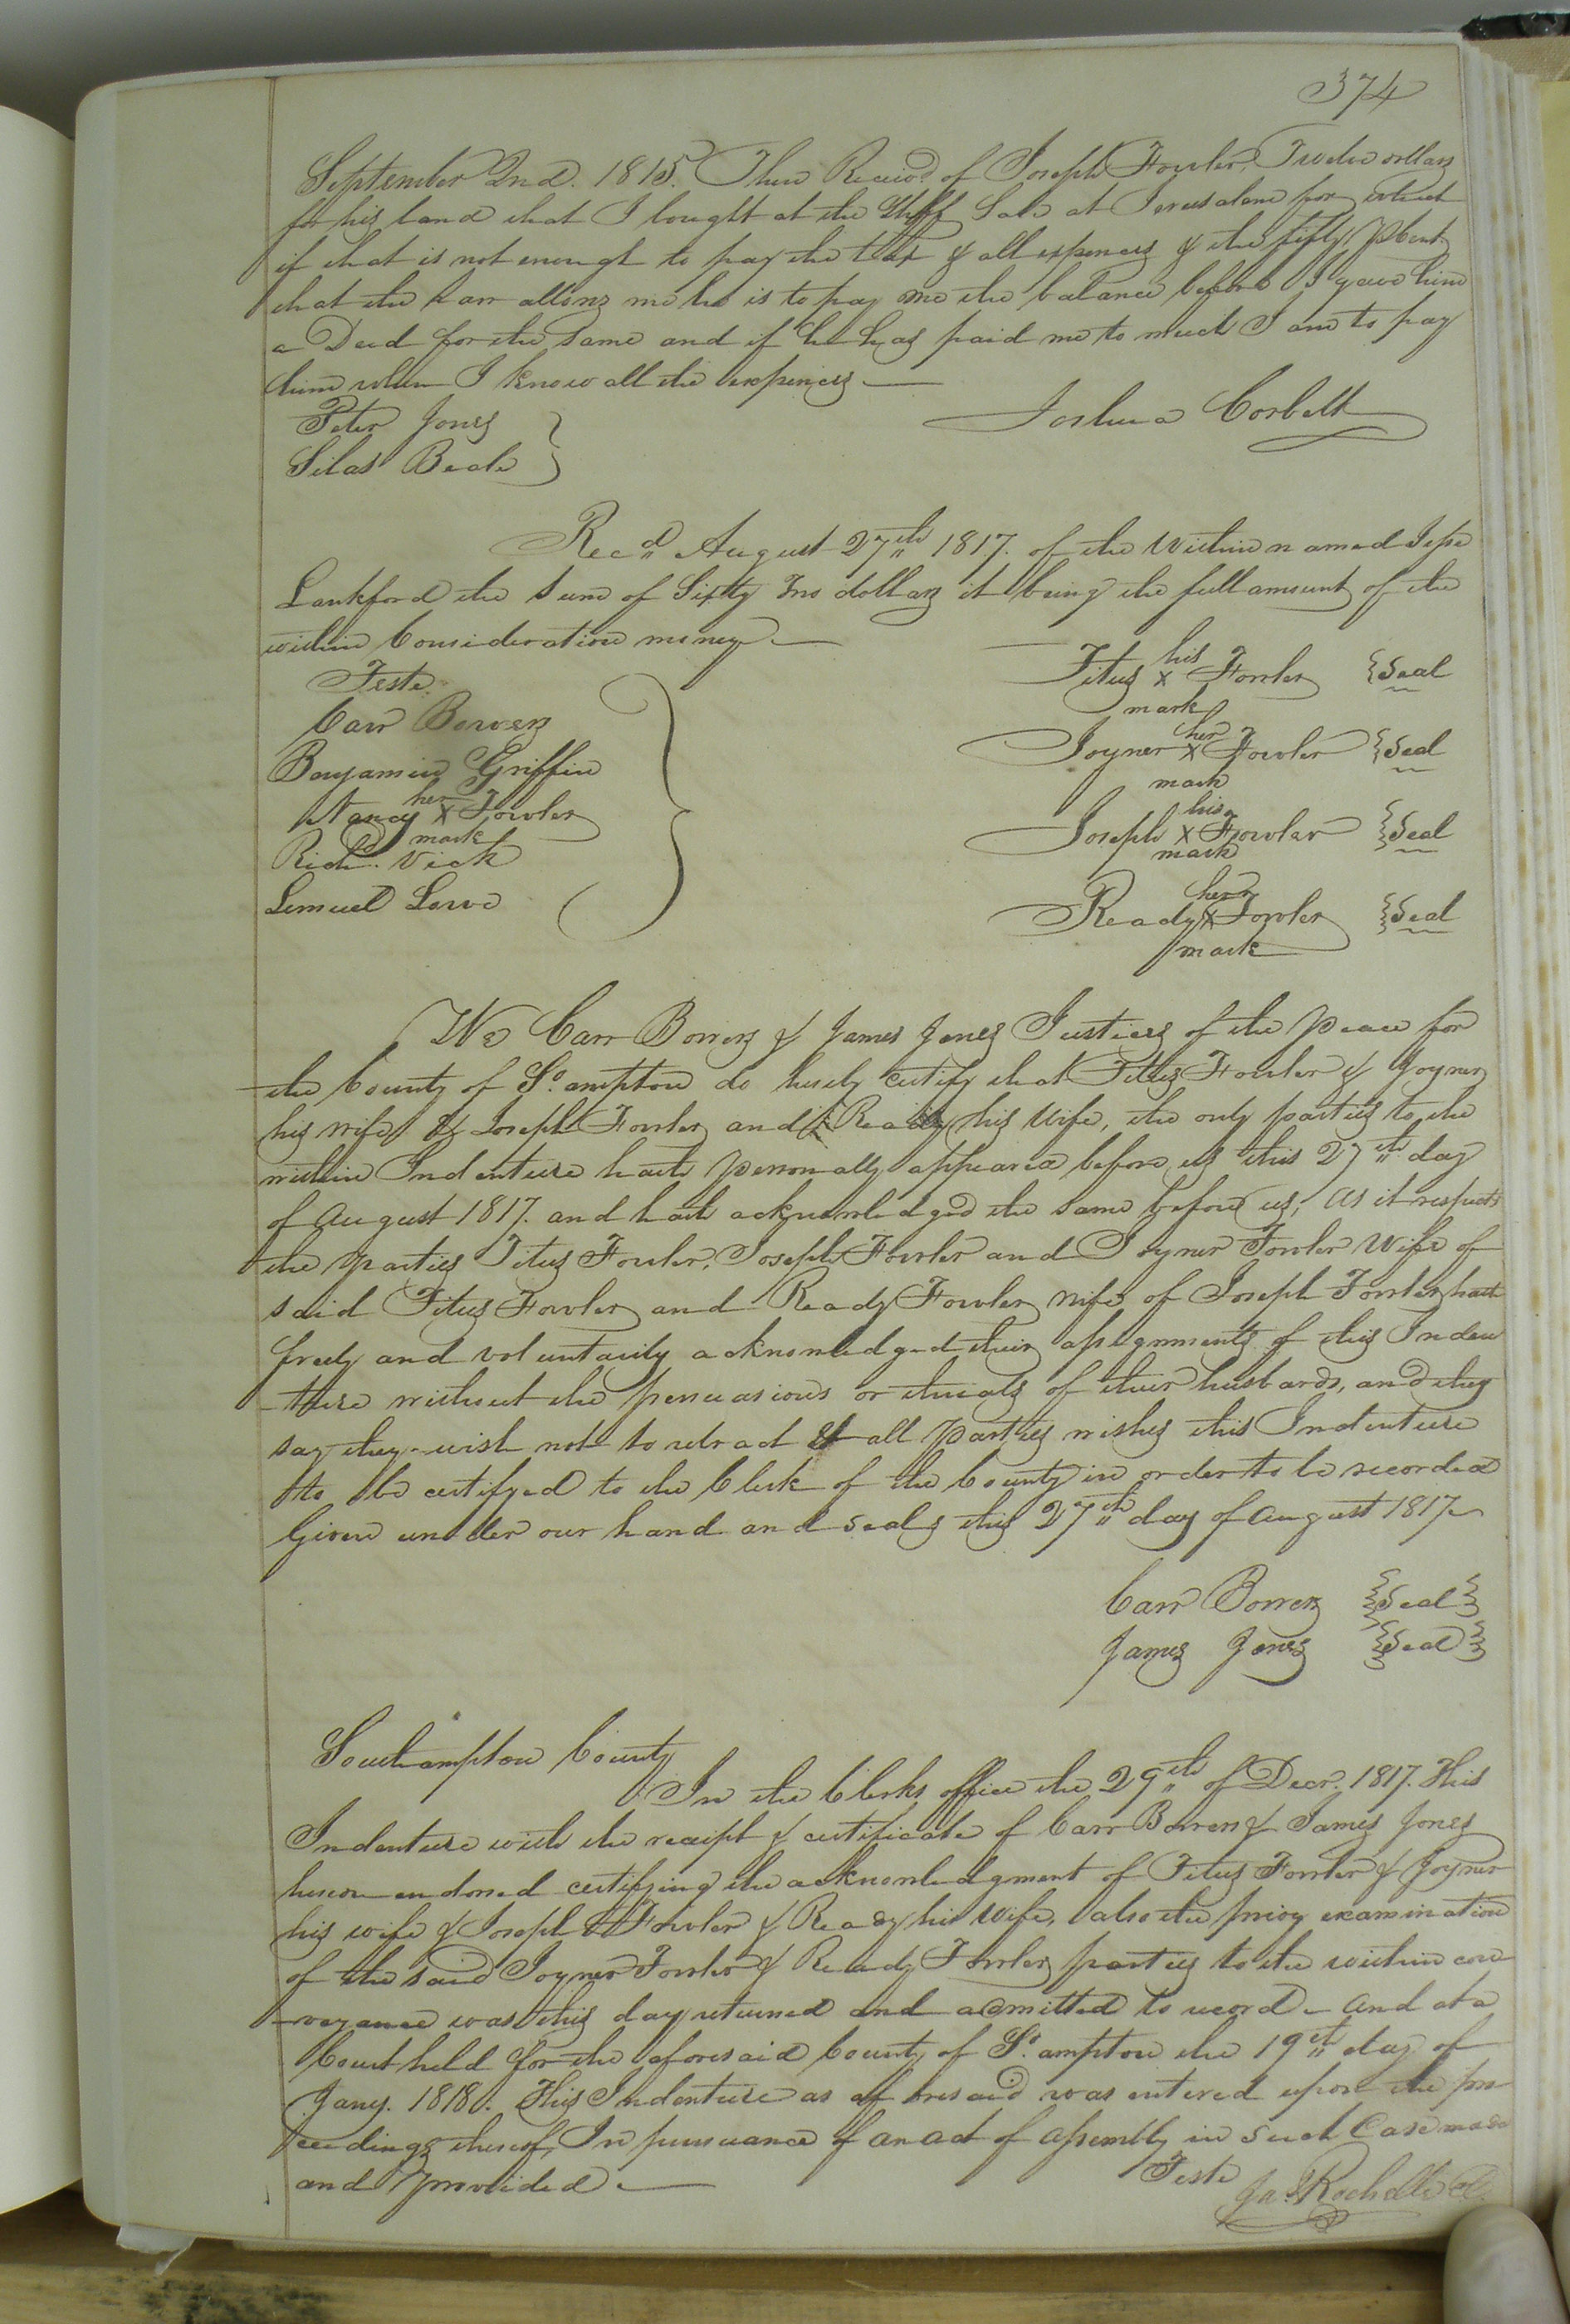 374
September 2nd. 1815. Then Receivd. of Joseph Fowler, Twelve dollars
for his land that I bought at the Shff Sale at Jerusalem for which
if that is not enough to pay the tax & all expences & the fifty Pcent
that the Law allows me he is to pay me the balance before I gave him
a Deed for the same and if he has paid me to much I am to pay
him when I know all the expences —
Joshua Corbett
Peter Jones
Silas Beale
Recd August 27th 1817. of the Within named Jesse
Lankford the sum of Sixty Two dollars it being the full amount of the
within Consideration money —
Teste
Carr Bowers
Benjamin Griffin
her
Nancy X Fowler
mark
Richd. Vick
Lemuel Lowe
his
Titus X Fowler {Seal
mark
her
Joyner X Fowler {Seal
mark
his
Joseph X Fowler {Seal
mark
her
Ready X Fowler {Seal
mark
We Carr Bowers & James Jones Justices of the peace for
the County of So.ampton do hereby certify that Titus Fowler & Joyner
his wife & Joseph Fowler and Ready his Wife, the only parties to the
within Indenture hath personally appeared before us this 27th day
of August 1817. and hath acknowledged the same before us, as it respects
the parties Titus Fowler, Joseph Fowler and Joyner Fowler Wife of
said Titus Fowler and Ready Fowler wife of Joseph Fowler hath
freely and voluntarily acknowledged their assignments of this Inden
-ture without the persuasions or threats of their husbards, and they
say they wish not to retract & all Parties wishes this Indenture
to be certifyed to the Clerk of the County in order to be recorded
Given under our hand and seals this 27th day of August 1817
Carr Bowers {Seal}
James Jones {Seal}
Southampton County
In the Clerks office the 29th of Decr. 1817. This
Indenture with the receipt & certificate of Carr Bowers & James Jones
hereon endorsed certifying the acknowledgment of Titus Fowler & Joyner
his wife & Joseph Fowler & Ready his Wife, also the privy examination
of the said Joyner Fowler & Ready Fowler parties to the within con
-veyance was this day returned and admitted to record – and at a
Court held for the aforesaid County of So.ampton the 19th day of
Jany. 1818. This Indenture as aforesaid was entered upon the pro
ceedings thereof, In pursuance of an act of assembly in such Case made
and Provided. —
Teste
Jas. Rochelle Cl.